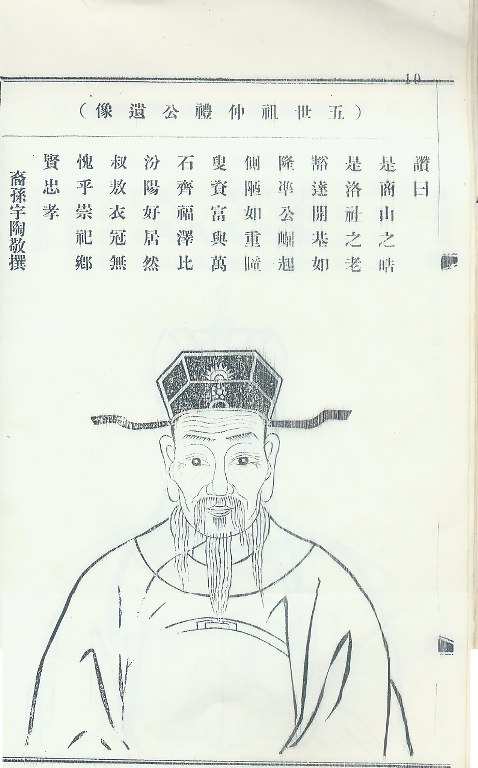 10
（五世祖仲禮公遺像）
讚曰
是商山之皓
是洛社之老
豁達開基如
隆準公崛起
側陋如重瞳
叟資富與萬
石齊福澤比
汾陽好居然
叔敖衣冠無
愧乎崇祀鄉
賢忠孝
裔孫宇陶敬撰